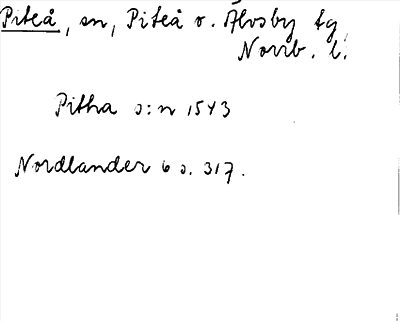 Piteå, sn, Piteå o. Älvsby tg,
Norrb. l.
Pitha s:n 1543
Nordlander 6 s. 317.